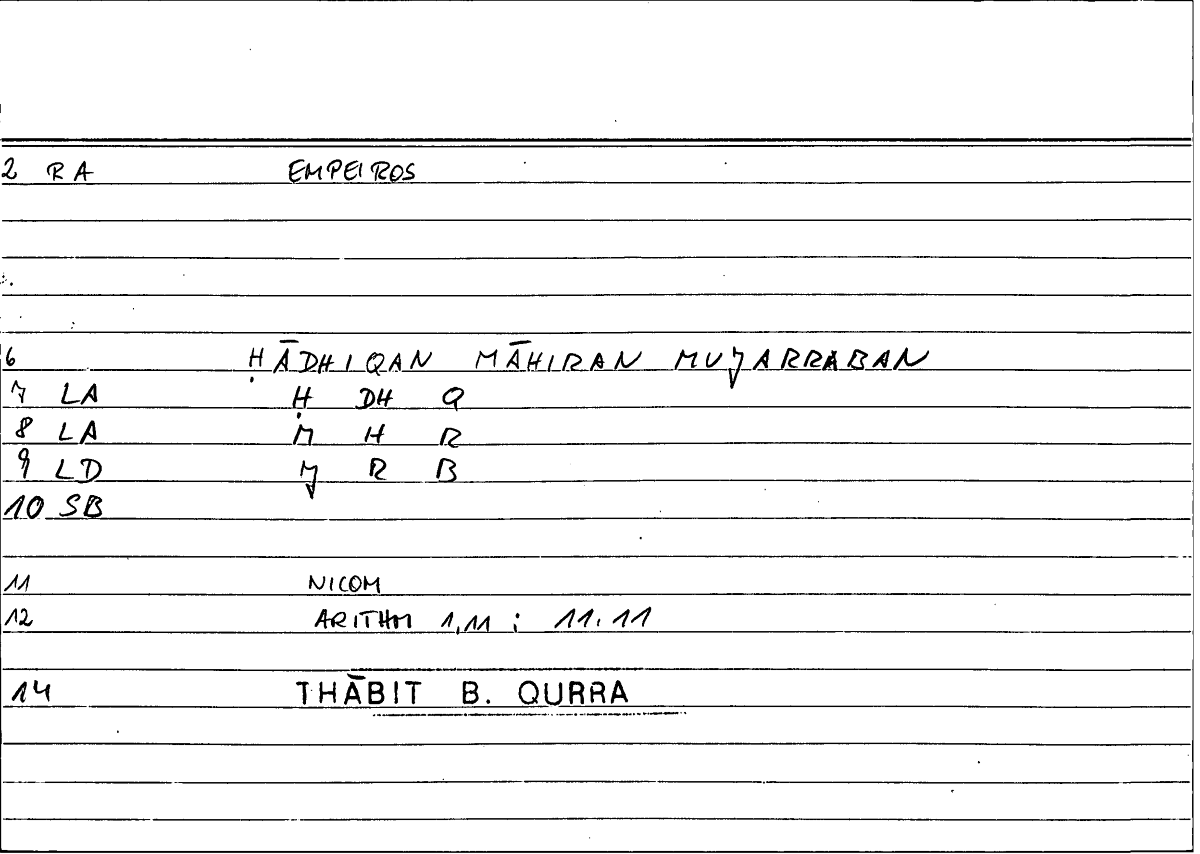 2 RA EMPEIROS
6 ḤĀDHIQAN MĀHIRAN MUJARRABAN
7 LA Ḥ DH Q
8 LA M H R
9 LD J R B
10 SB
11 NICOM
12 ARITHM 1,11 ; 11.11
14 THĀBIT B. QURRA